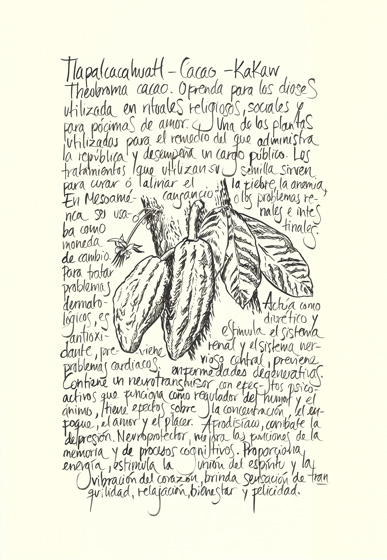 Tlapalcacahuatl - Cacao - Kakaw
Theobroma cacao. Ofrenda para los dioses
utilizada en rituales religiosos, sociales y
para pócimas de amor. Una de las plantas
utilizadas para el remedio del que administra
la república y desempeña un cargo público. Los
tratamientos que utilizan su semilla sirven
para curar ó alinar el cansancio, la fiebre, la anemia,
o los problemas re-
nales e intes
tinales.
En Mesoamé-
rica se usa-
ba como
moneda
de cambio.
Para tratar
problemas
dermato-
lógicos, es
antioxi-
dante, pre- viene
problemas cardiacos.
Actúa como
diurético y
estimula el sistema
renal y el sistema ner-
vioso central, previene
enfermedades degenerativas.
Contiene un neurotransmisor con efectos psico-
activos que funciona como regulador del humor y el
ánimo, tiene efectos sobre la concentración, el en-
foque, el amor y el placer. Afrodisíaco, combate la
depresión. Neuroprotector, mejora las funciones de la
memoria y de procesos cognitivos. Proporciona
energía, estimula la unión del espíritu y la
vibración del corazón, brinda sensación de tran
quilidad, relajación, bienestar y felicidad.